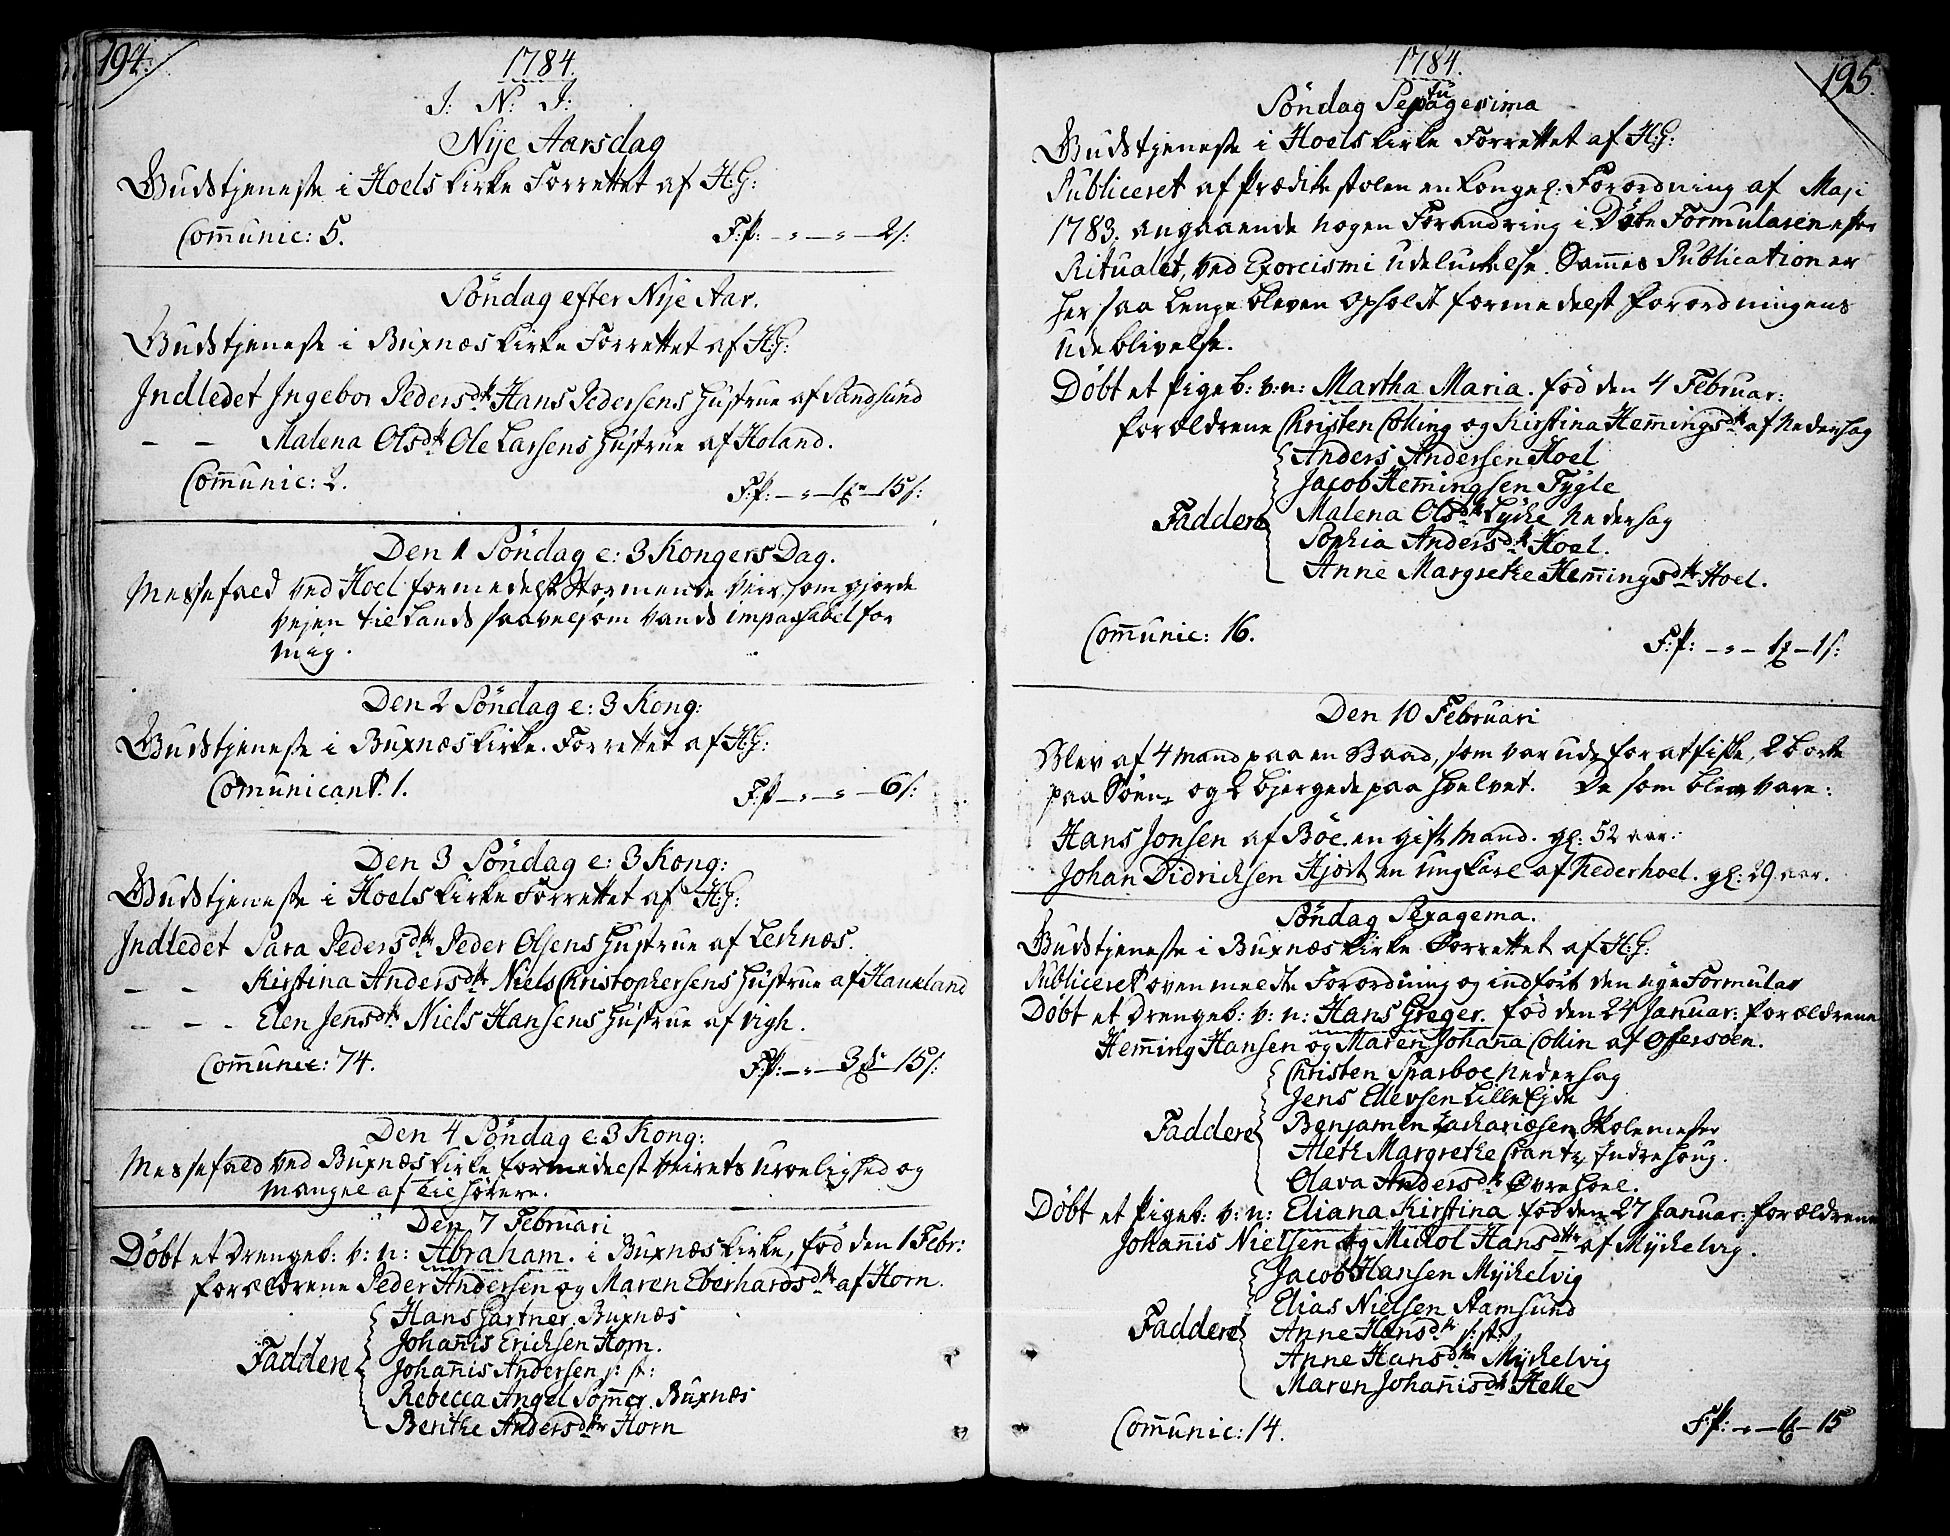 194.
1784.
J: N: J:
Nije Aarsdag
Gudstjeneste i Hoels kirke Forrettet af H:G:
Com̅unic: 5. F:P: – „ – „ – 2 s:
Søndag efter Nije Aar.
Gudstjeneste i Buxnæs kirke Forrettet af H:G:
Indledet Ingebor Pedersdtr Hans Pedersens Hustrue af Sandsund
– – Malena Olsdtr Ole Larsens Hustrue af Holand.
Com̅unic: 2. F:P: – „ – 1 – 15 s:
Den 1 Søndag e: 3 Kongers Dag.
Messefald ved Hoel formedelst stormende Veir, som gjorde
Vejen til Lands saavelsom Vands impassabel for
mig.
Den 2 Søndag e: 3 Kong:
Gudstjeneste i Buxnæs kirke. Forrettet af H:G:
Com̅unicant. 1. F:P – „ – „ – 6 s:
Den 3 Søndag e: 3 Kong:
Gudstjeneste i Hoels kirke Forrettet af H:G:
Indledet Sara Pedersdtr Peder Olsens Hustrue af Lecknæs.
– – Kirstina Andersdtr Niels Christophersens Hustrue af Haukland
– – – Elen Jensdtr Niels Hansens Hustrue af Vigh.
Com̅unic: 74. F:P: – „ – 3 – 15 s:
Den 4 Søndag e: 3 Kong:
Messefald ved Buxnæs kirke formedelst Veirets uroelighed og
Mangel af Tilhørere.
Den 7 Februari
Døbt et Drengeb: v: n: Abraham. i Buxnæs kirke, fød den 1 Febr:
forældrene Peder Andersen og Maren Eberhardsdtr af Horn.
Hans Gartner. Buxnæs
Johan̅is Ericksen Horn.
Faddere Johan̅is Andersen s: st:
Rebecca Angel Som̅er. Buxnæs
Berithe Andersdtr Horn
195.
1784.
Søndag Septuagesima
Gudstjeneste i Hoels kirke Forrettet af H:G:
Publiceret af Prædikestolen en Kongel: Forordning af Maji
1783. angaaende nogen Forandring i Døbe Formularen efter
Ritualet, ved Exorcismi udelukkelse. Sam̅es Publication er
her saa lenge bleven opholdt formedelst forordningens
udeblivelse.
Døbt et Pigeb: v: n: Martha Maria. fød den 4 Februar:
forældrene Christen Colling og Kirstina Hem̅ingsdtr af Nedershag
Anders Andersen Hoel
Jacob Hem̅ingsen Tygle
Faddere Malena Olsdtr Lycke Nedershag
Sophia Andersdtr Hoel.
Anne Margrethe Hem̅ingsdtr Hoel.
Com̅unic: 16. F:P: – „ – 1 – 1 s:
Den 10 Februari
Blev af 4 Mand paa en Baad, som var ude for at fiske, 2 borte
paa Søen, og 2 bjergede paa Hvelvet. De som blev vare:
Hans Jonsen af Bøe en gift Mand. gl: 52 aar.
Johan Didricksen Hjort en ungkarl af Nederhoel. gl: 29 aar.
Søndag Sexagema.
Gudstjeneste i Buxnæs kirke Forrettet af H:G:
Publiceret ovenmeldte Forordning og indført den nye Formular
Døbt et Drengeb: v: n: Hans Greger. fød den 24 Januar: forældrene
Hem̅ing Hansen og Maren Johan̅a Collin af Offersøen.
Christen Sparboe Nedershag
Jens Ellevsen Lille Ejde
Faddere Benjamin Zachariæsen Skolemester
Aleth Margrethe Crantz Indrehoug.
Olava Andersdtr Øvrehoel.
Døbt et Pigeb: v: n: Eliana Kirstina fød den 27 Januar. forældrene
Johan̅is Nielsen og Mickol Hansdtr af Myckelvig.
Jacob Hansen Myckelvig
Elias Nielsen Stamsund
Faddere Anne Hansdtr s: st:
Anne Hansdtr Myckelvig
Maren Johan̅isdtr Helle
Com̅unic: 14. F:P: – „ – 1 – 15